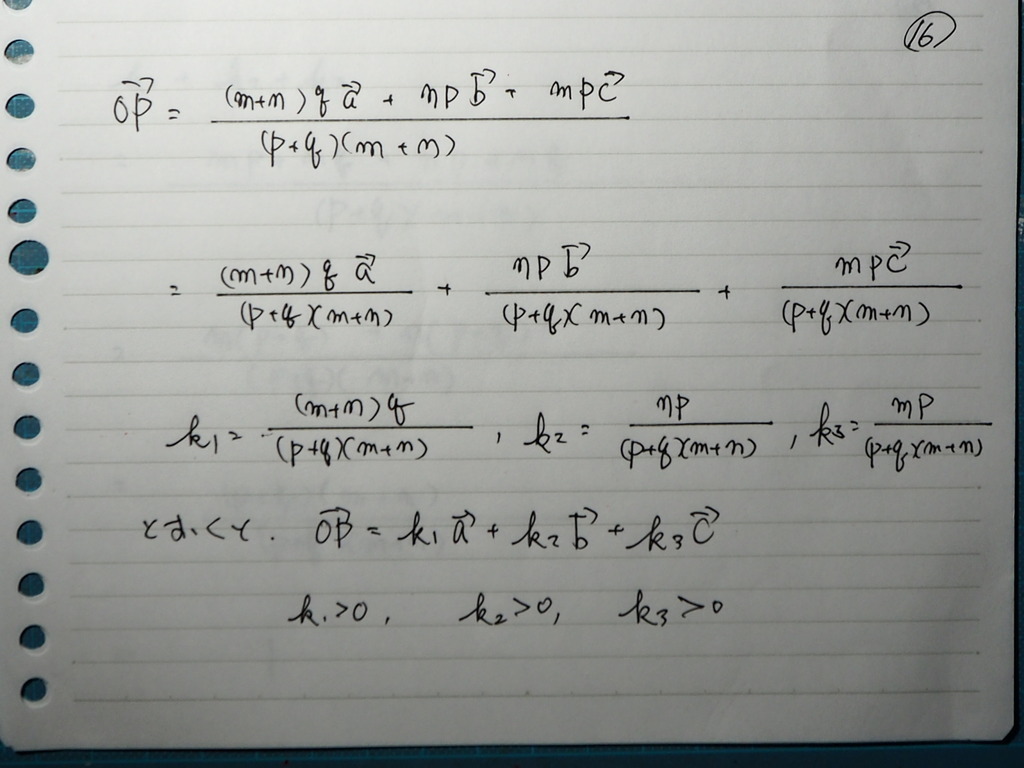 ⑯
\vec{OP} = \frac{(m+n)q\vec{a} + np\vec{b} + mp\vec{c}}{(p+q)(m+n)}
= \frac{(m+n)q\vec{a}}{(p+q)(m+n)} + \frac{np\vec{b}}{(p+q)(m+n)} + \frac{mp\vec{c}}{(p+q)(m+n)}
k_1 = \frac{(m+n)q}{(p+q)(m+n)}, k_2 = \frac{np}{(p+q)(m+n)}, k_3 = \frac{mp}{(p+q)(m+n)}
とおくと. \vec{OP} = k_1\vec{a} + k_2\vec{b} + k_3\vec{c}
k_1>0, k_2>0, k_3>0